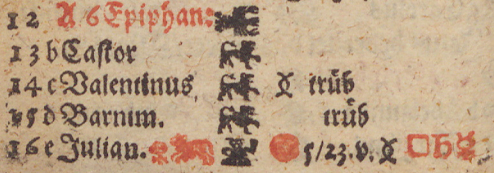 12 A 6 Epiphan:
13 b Castor
14 c Valentinus, trüb
15 d Barnim. trüb
16 e Julian. 5/23.v. □ ♄ ☿